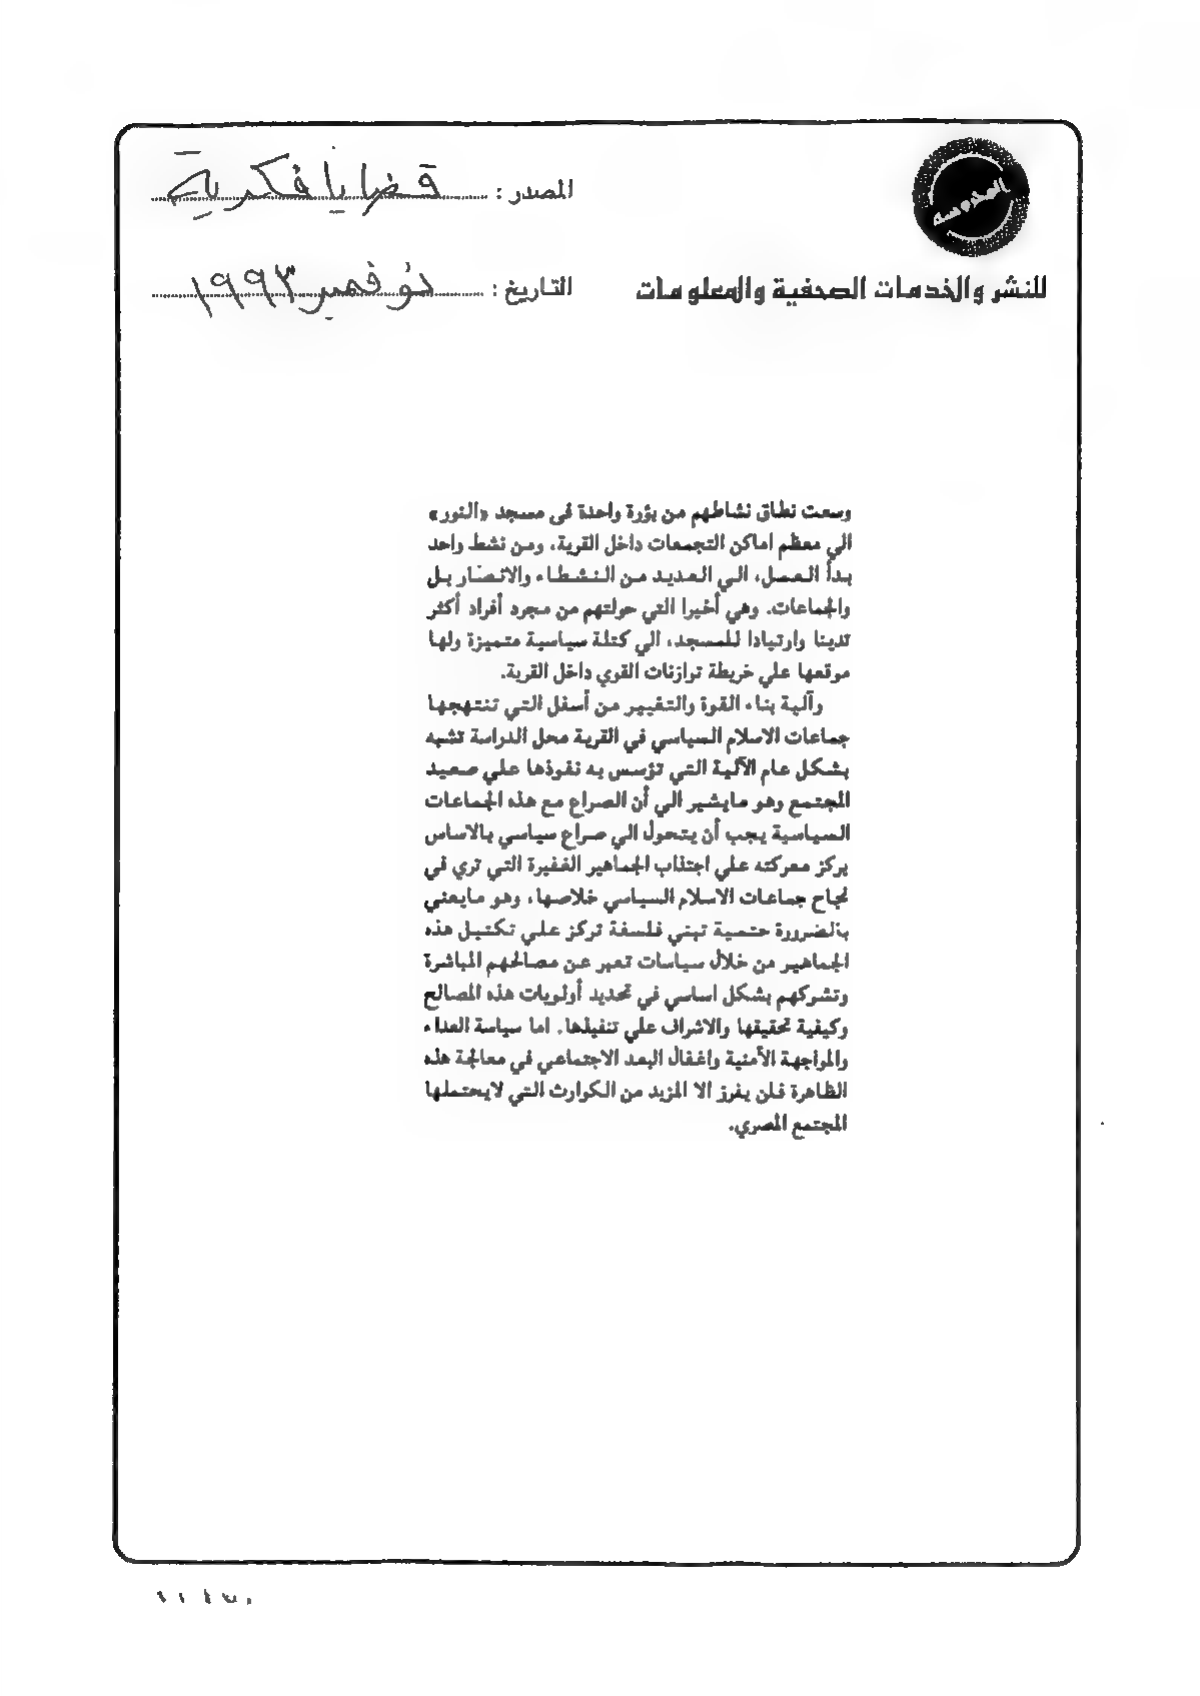 المحروسة
المصدر : قضايا فكرية
للنشر والخدمات الصحفية والمعلومات
التاريخ : نوفمبر ١٩٩٣
وسعت نطاق نشاطهم من بؤرة واحدة فى مسجد «النور»
الي معظم اماكن التجمعات داخل القرية، ومن نشط واحد
بدأ العمل، الي العديد من النشطاء والانصار بل
والجماعات. وهي أخيرا التي حولتهم من مجرد أفراد أكثر
تدينا وارتيادا للمسجد، الي كتلة سياسية متميزة ولها
موقعها علي خريطة توازنات القوي داخل القرية.
وآلية بناء القوة والتغيير من أسفل التي تنتهجها
جماعات الاسلام السياسي في القرية محل الدراسة تشبه
بشكل عام الآلية التي تؤسس به نفوذها علي صعيد
المجتمع وهو مايشير الي أن الصراع مع هذه الجماعات
السياسية يجب أن يتحول الي صراع سياسي بالاساس
يركز معركته علي اجتذاب الجماهير الغفيرة التي تري في
نجاح جماعات الاسلام السياسي خلاصها، وهو مايعني
بالضرورة حتمية تبني فلسفة تركز علي تكتيل هذه
الجماهير من خلال سياسات تعبر عن مصالحهم المباشرة
وتشركهم بشكل اساسي في تحديد أولويات هذه المصالح
وكيفية تحقيقها والاشراف علي تنفيذها. اما سياسة العداء
والمواجهة الأمنية واغفال البعد الاجتماعي في معالجة هذه
الظاهرة فلن يفرز الا المزيد من الكوارث التي لايحتملها
المجتمع المصري.